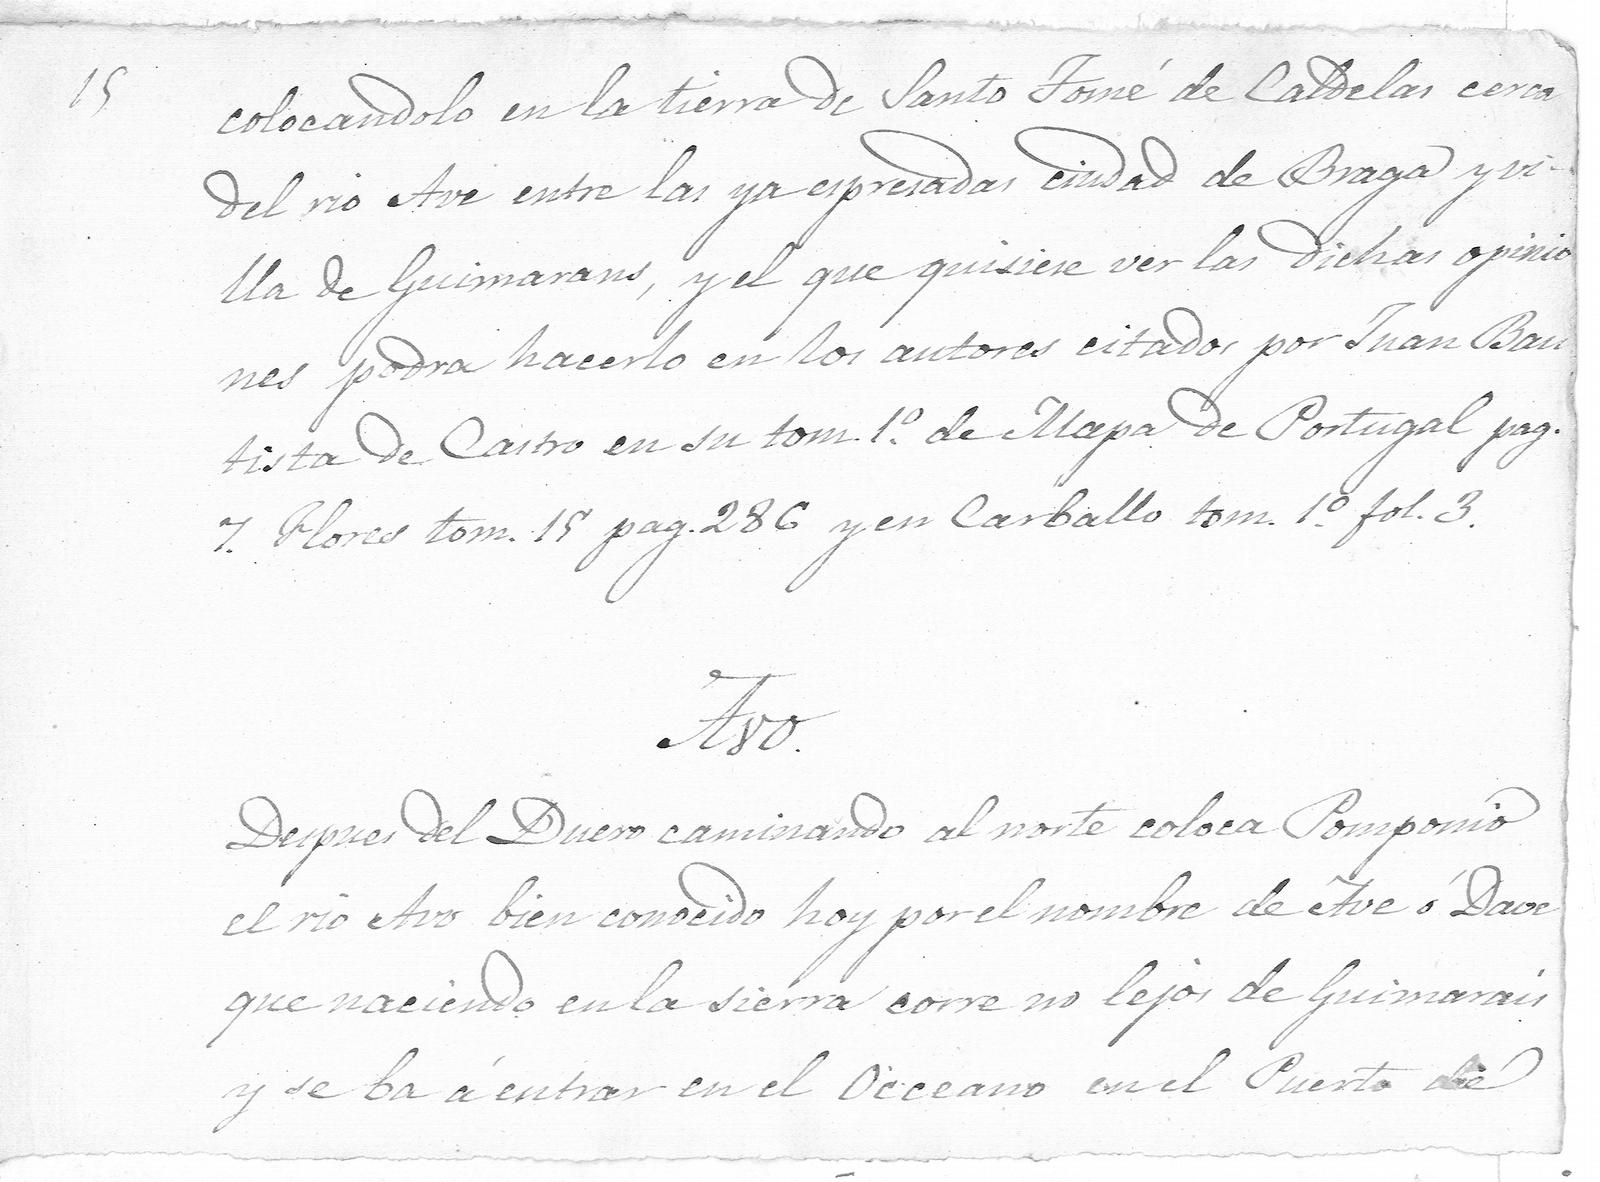 15
colocandolo en la tierra de Santo Tomé de Caldelas cerca
del rio Ave entre las ya espresadas ciudad de Braga y vi-
lla de Guimarans, y el que quisiese ver las dichas opinio
nes podra hacerlo en los autores citados por Juan Bau
tista de Castro en su tom. 1º. de Mapa de Portugal pag.
7. Flores tom. 15 pag. 286 y en Carballo tom. 1º. fol. 3.
Avo.
Despues del Duero caminando al norte coloca Pomponio
el rio Avo bien conocido hoy por el nombre de Ave ó Dave
que naciendo en la sierra corre no lejos de Guimarais
y se ba á entrar en el Occeano en el Puerto de